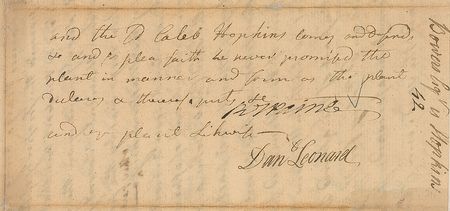 and the sd Caleb Hopkins comes and defends
&c and for plea saith he never promised the
plant in manner and form as the plant
declares & thereof puts &c
and ye plant Likewise
Danl Leonard
Bowen by vs Hopkins
42